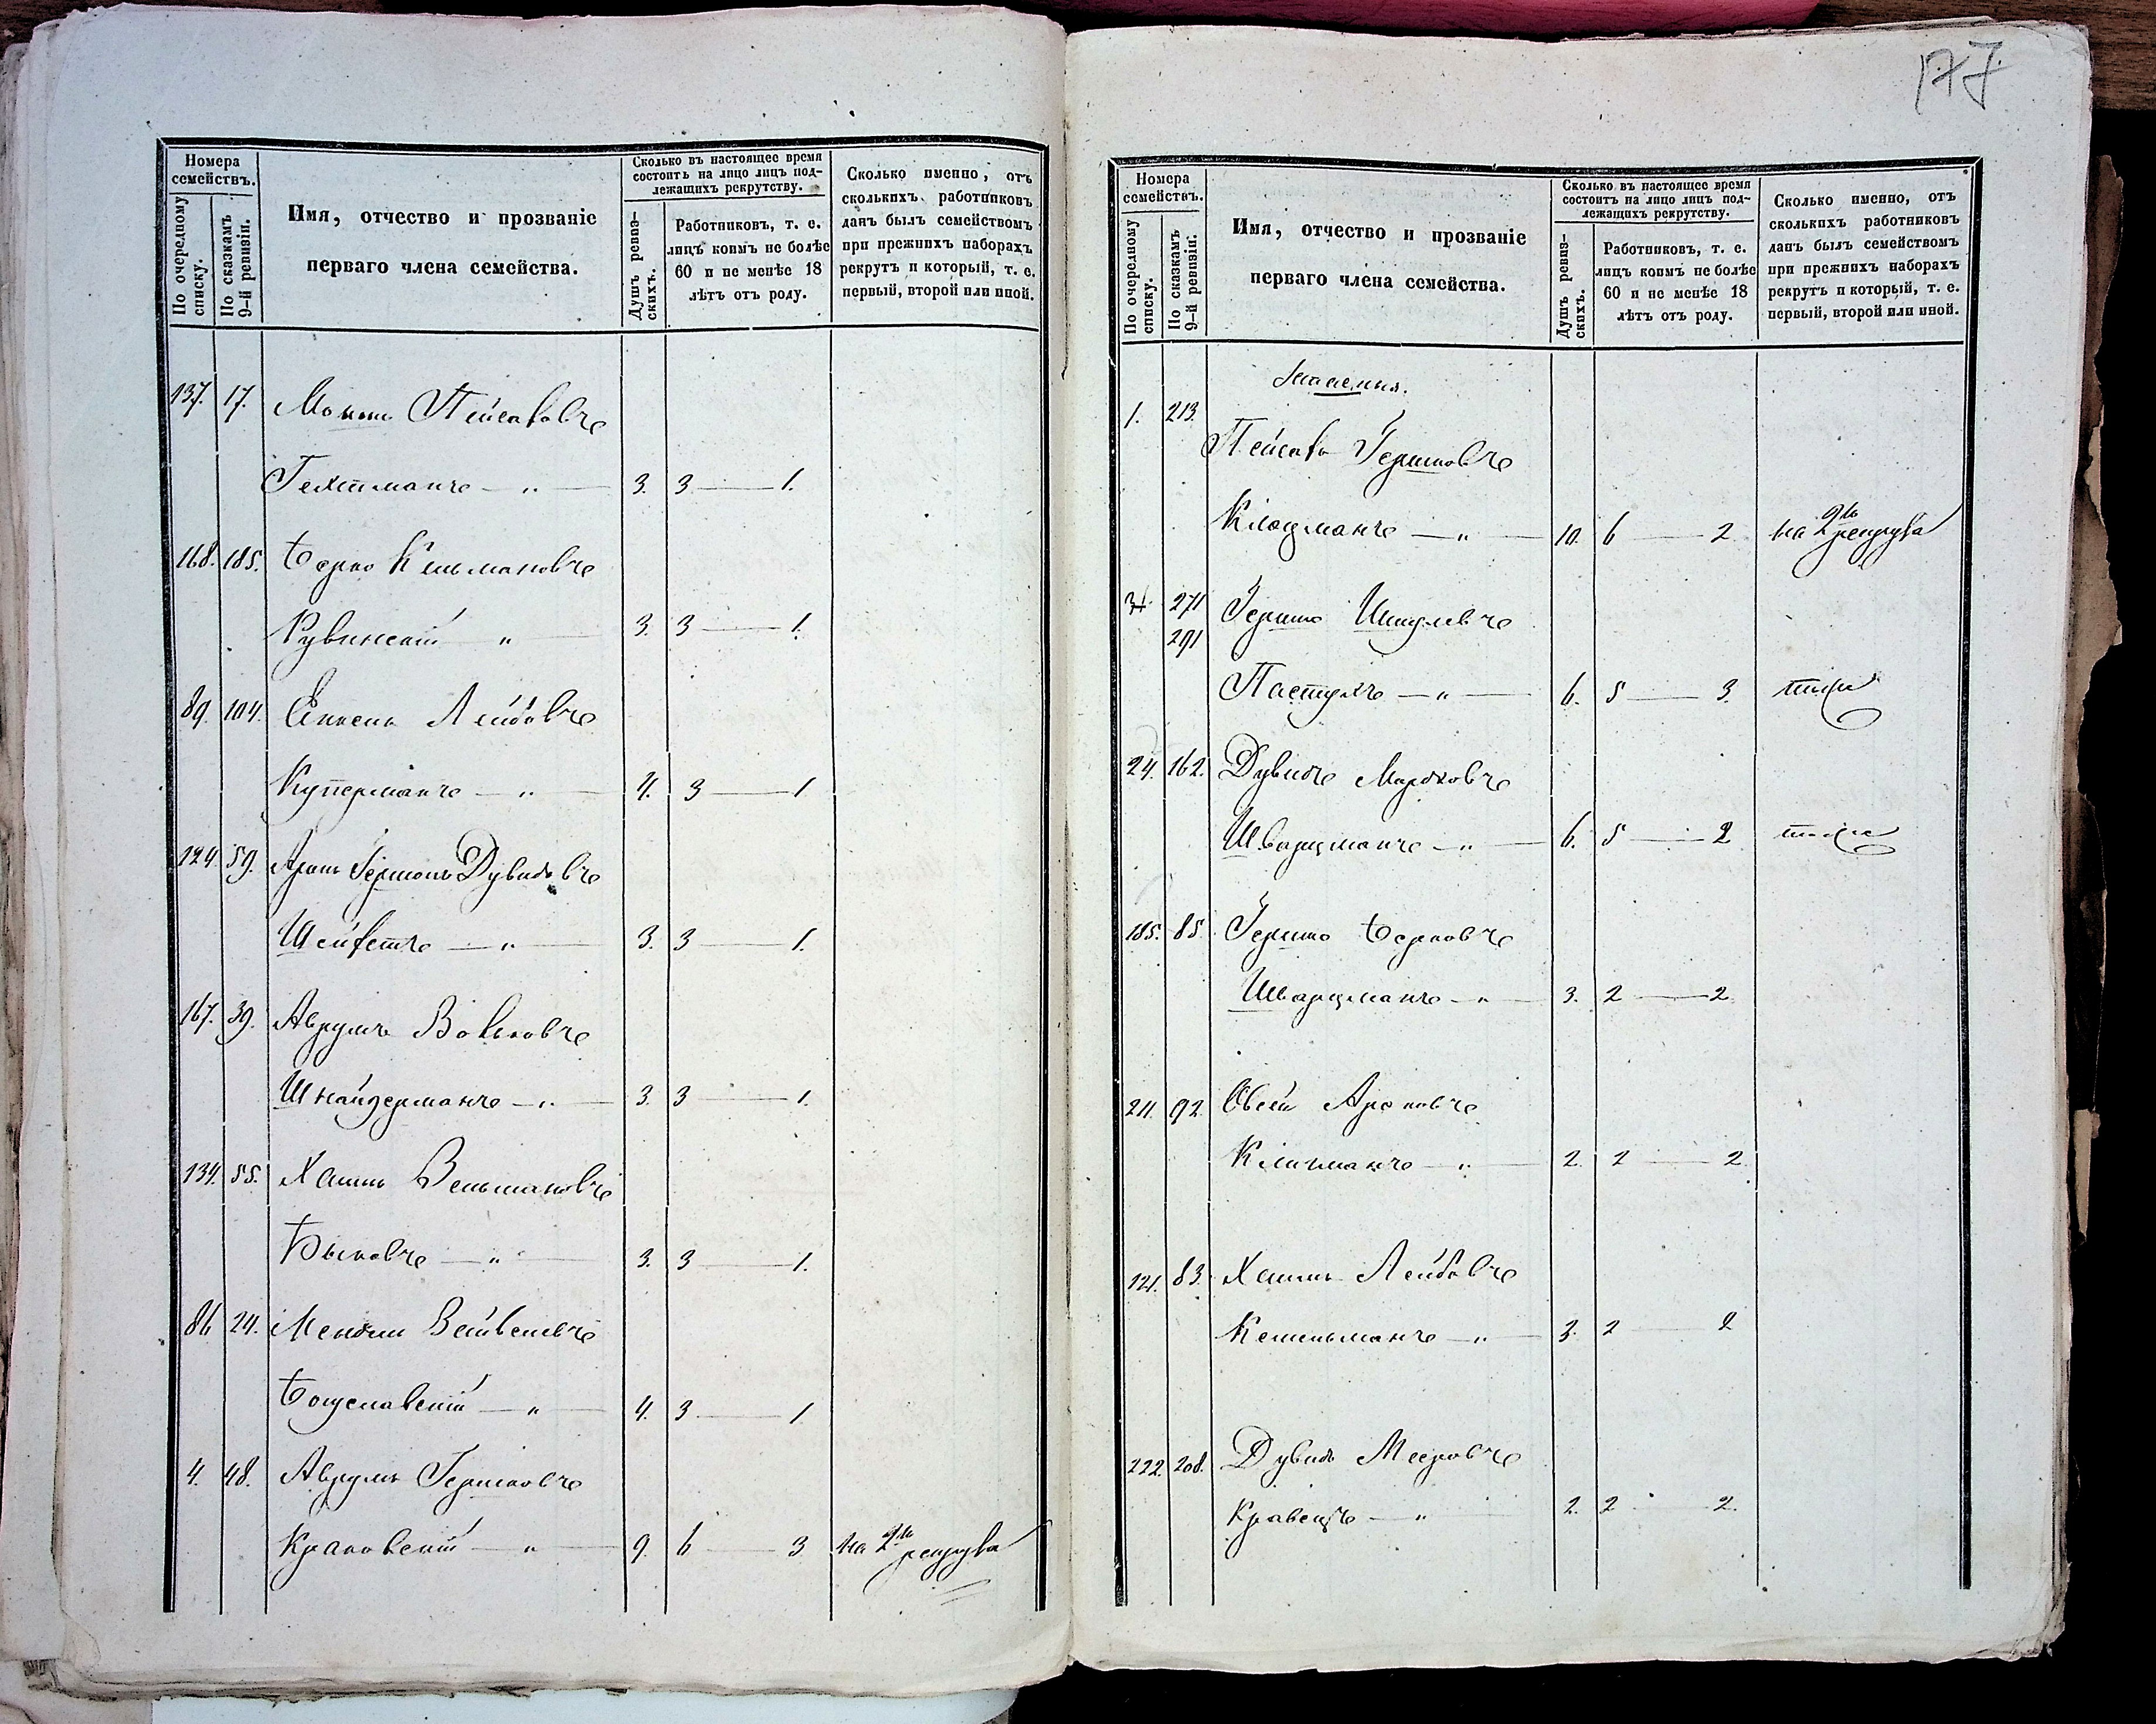 Номера семействъ.
По очередному списку.
По сказкамъ 9-й ревизіи.
Имя, отчество и прозваніе
перваго члена семейства.
Сколько въ настоящее время
состоитъ на лицо лицъ под-
лежащихъ рекрутству.
Душъ ревиз-
скихъ.
Работниковъ, т. е.
лицъ коимъ не болѣе
60 и не менѣе 18
лѣтъ отъ роду.
Сколько именно, отъ
сколькихъ работниковъ
данъ былъ семействомъ
при прежнихъ наборахъ
рекрутъ и который, т. е.
первый, второй или иной.
137. 17. Мошко Пейсаховъ
Гехтманъ — „ — 3. 3 — 1.
168. 185. Берко Кельмановъ
Рувинскій „ 3. 3 — 1.
89. 104. Лейбовъ
Куперманъ — „ — 4. 3 — 1
124. 59. Аронъ Гершонъ Дувидовъ
Шейфетъ — „ — 3. 3 — 1.
167. 39. Аврумъ Вольковъ
Шнайдерманъ — „ — 3. 3 — 1.
134. 55. Хаимъ Зельмановъ
Быковъ — „ — 3. 3 — 1.
86 24. Мендель Зейвелевъ
Богуславскій — „ — 4. 3 — 1
4. 48. Аврумъ Гершковъ
Краковскій — „ — 9. 6 — 3 на 2го рекрута
177
Номера
семействъ.
По очередному
списку.
По сказкамъ
9-й ревизіи.
Имя, отчество и прозваніе
перваго члена семейства.
Сколько въ настоящее время
состоитъ на лицо лицъ под-
лежащихъ рекрутству.
Душъ ревиз-
скихъ.
Работниковъ, т. е.
лицъ коимъ не болѣе
60 и не менѣе 18
лѣтъ отъ роду.
Сколько именно, отъ
сколькихъ работниковъ
данъ былъ семействомъ
при прежнихъ наборахъ
рекрутъ и который, т. е.
первый, второй или иной.
1. 213.
Пейсахъ Гершковъ
Клоцманъ — „ — 10. 6 — 2 на 2го рекрута
271 Гершко Шмулевъ
291
Пастухъ — „ — 6. 5 — 3. тоже
24. 162. Дувидъ Мордковъ
Шварцманъ — „ — 6. 5 — 2 тоже
185. 85. Гершко Берковъ
Шварцманъ — „ — 3. 2 — 2
211. 92. Овсей Ароновъ
Клигманъ — „ — 2. 2 — 2
121. 83. Хаимъ Лейбовъ
Кешельманъ — „ — 3. 2 — 2
222. 208. Дувидъ Мееровъ
Кравецъ — „ — 2. 2 — 2.